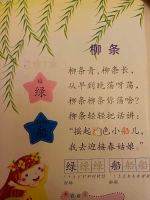 柳条
柳条青,柳条长,
从早到晚荡呀荡。
柳条柳条你荡啥?
柳条轻轻把话讲:
"摇起绿色小船儿,
我去迎接春姑娘。"
绿
船
绿 绿 绿 船 船 船